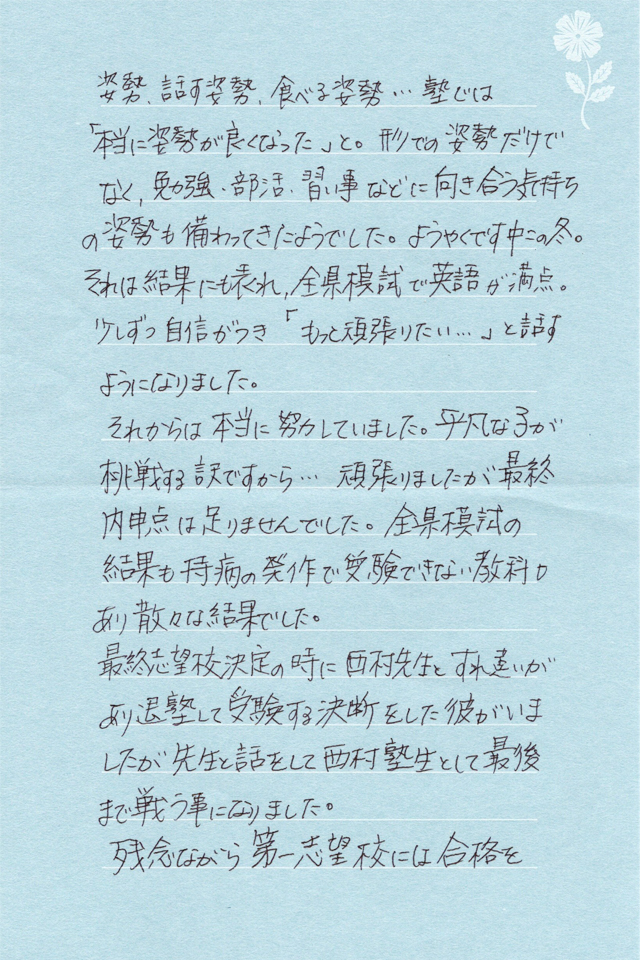 姿勢、話す姿勢、食べる姿勢… 塾では
「本当に姿勢が良くなった」と。形での姿勢だけで
なく、勉強、部活、習い事などに向き合う気持ち
の姿勢も備わってきだようでした。ようやくです中二の冬。
それは結果にも表れ、全県模試で英語が満点。
少しずつ自信がつき「もっと頑張りたい…」と話す
ようになりました。
それからは本当に努力していました。平凡な子が
挑戦する訳ですから… 頑張りましたが最終
内申点は足りませんでした。全県模試の
結果も持病の発作で受験できない教科が
あり散々な結果でした。
最終志望校決定の時に西村先生とすれ違いが
あり退塾して受験する決断をした彼がいま
したが先生と話をして西村塾生として最後
まで戦う事になりました。
残念ながら第一志望校には合格を